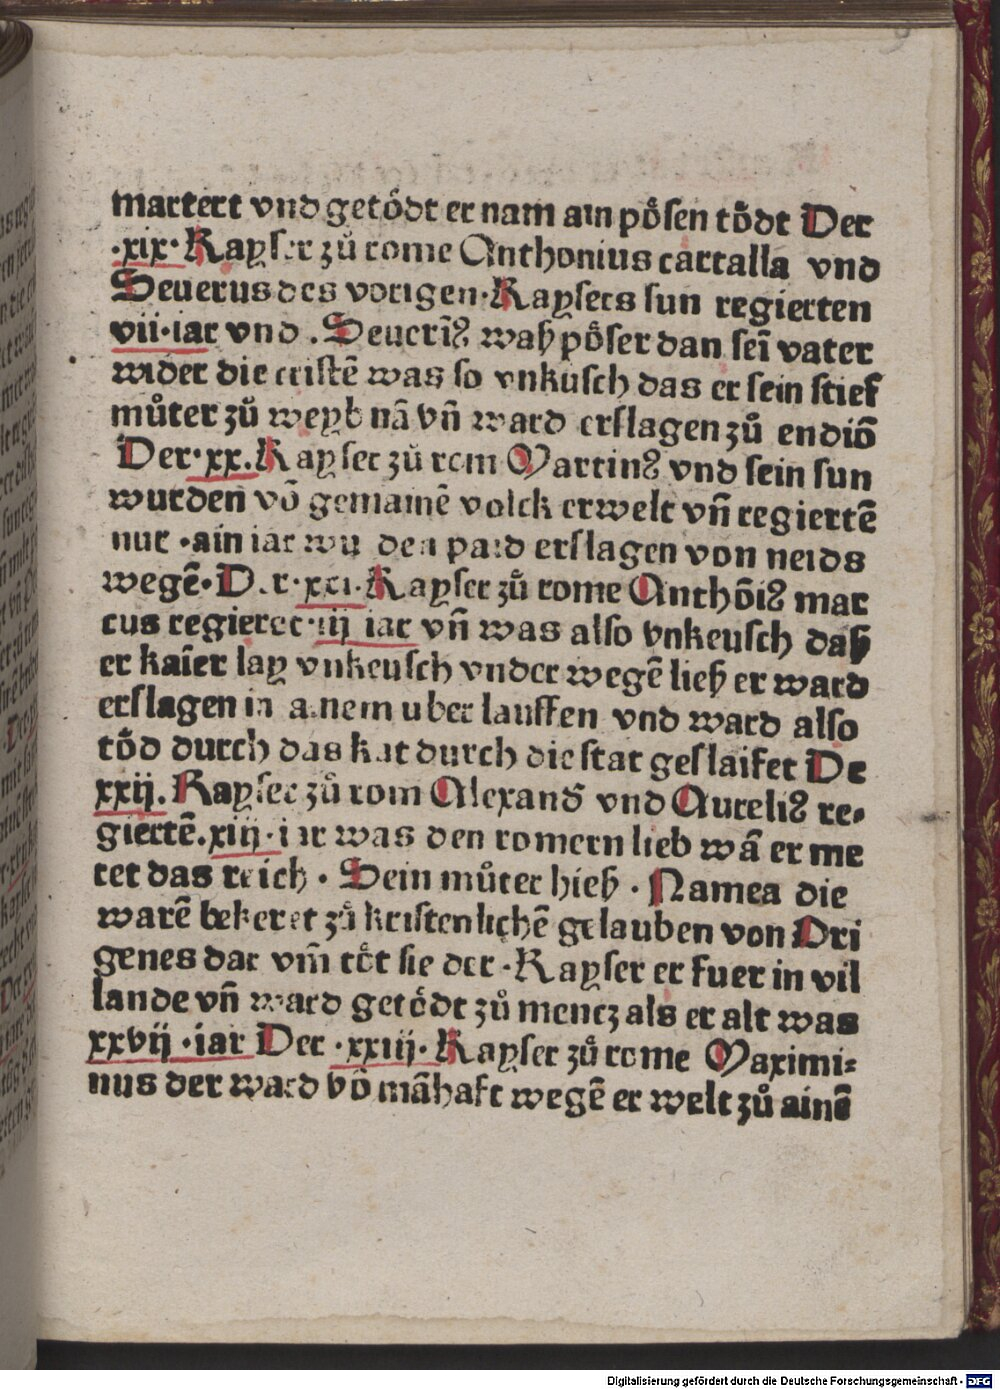 martert vnd getoͤdt er nam ain poͤsen toͤdt Der
·xix· Kayser zuͦ rome Anthonius cartalla vnd
Seuerus des vorigen· Kaysers sun regierten
vii·iar vnd . Seuerīꝰ waß poͤser dan sei᷑ vater
wider die cristē was so vnkusch das er sein stief
muͦter zuͦ weyb nā vn̄ ward erslagen zuͦ endiō
Der·xx. Kayser zuͦ rom Martinꝰ vnd sein sun
wurden vō gemainē volck erwelt vn̄ regiertē
nur ·ain iar wurden paid erslagen von neids
wegē· Der·xxi· Kayser zuͦ rome Anthōiꝰ mar
cus regieret·iij iar vn̄ was also vnkeusch daß
er kaīer lay vnkeusch vnder wegē ließ er ward
erslagen in ainem uber lauffen vnd ward also
toͤd durch das kat durch die stat geslaifet De
xxij. Kayser zuͦ rom Alexand᷑ vnd Aureliꝰ re⸗
giertē.xiij·iar was den romern lieb wā er me
ret das reich · Sein muͦter hieß · Namea die
warē bekeret zuͦ kristenlichē gelauben von Ori
genes dar vm̄ toͤt sie der · Kayser er fuer in vil
lande vn̄ ward getoͤdt zuͦ mentz als er alt was
xxvij ·iar Der ·xxiij· Kayser zuͦ rome Maximi⸗
nus der ward vō māhaft wegē er welt zuͦ ainē
9
Digitalisierung gefördert durch die Deutsche Forschungsgemeinschaft - DFG